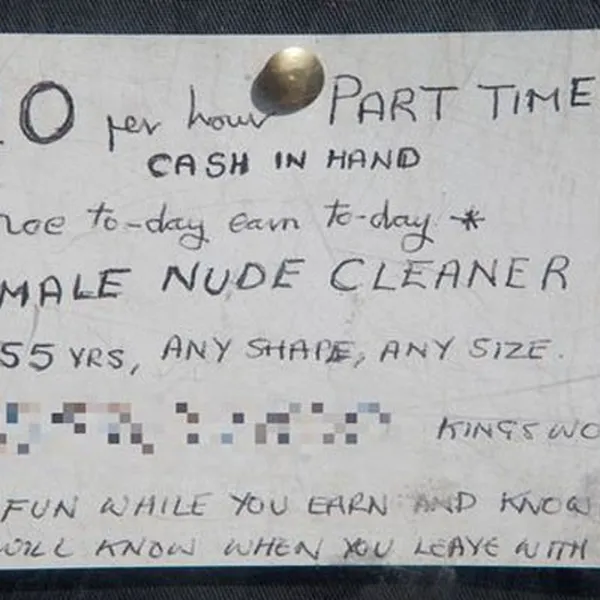 10 per hour PART TIME
CASH IN HAND
to-day earn to-day *
MALE NUDE CLEANER
55 YRS, ANY SHAPE, ANY SIZE.
KINGSWO
FUN WHILE YOU EARN AND KNOW
WILL KNOW WHEN YOU LEAVE WITH